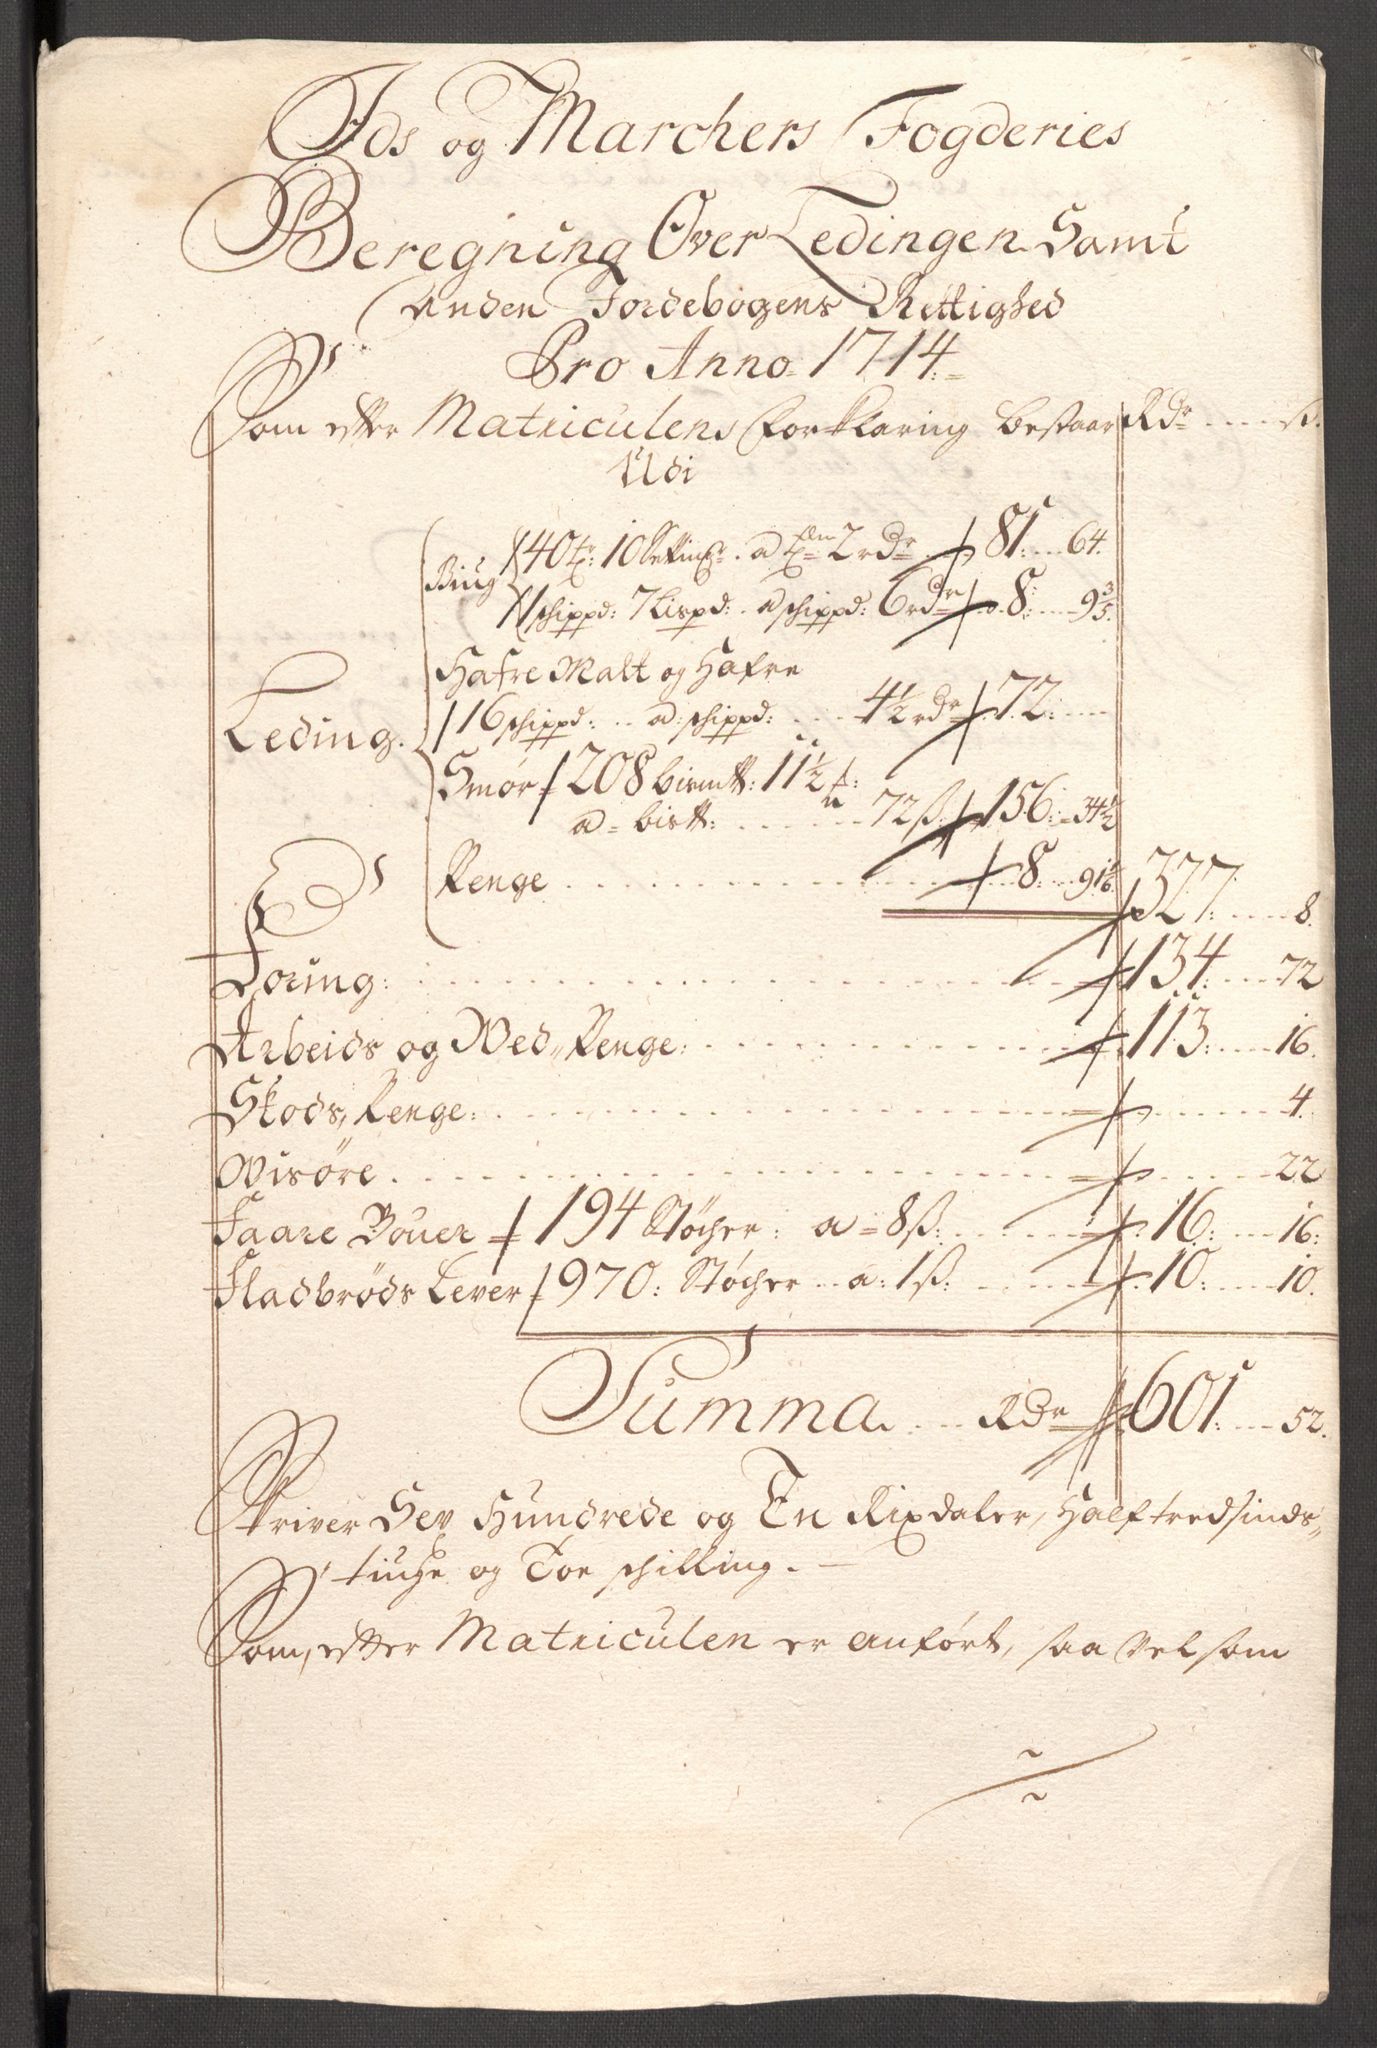 Ids og Marchers Fogderies
Beregning Over Ledingen Samt
Anden Jordebogens Rettighed
Pro Anno 1714
Som efter Matriculens forklaring bestaar Rdr ß
Udi
Biug 40 tr: 10 settinger a tdn 2 rdr 81: 64.
1 schippd: 7 Lispd: a schippd: 6 rdr 8: 9 3/5.
Hafre Malt og Hafre
Leding. 16 schippd: a schippd: 4 1/2 rdr 72:
Smør 208 bismtt: 11 1/2 n
a bistt: 72 ß: 156: 34 1/2
Penge 8: 91 1/6. 327: 8.
Foring: 134: 72
Arbeids og Wed Penge: 113: 16.
Skods Penge: 4.
Wisøre 22
Faare Bouer 194 Støcher: a 8 ß: 16: 16:
Fladbrøds Lever 970: Støcher a: 1 ß: 10: 10.
Summa Rdr 601: 52.
Skriver Sex Hundrede og En Rixdaler, Halftredsinds
tiuge og Toe schilling.
Som, efter Matriculen er anført, saa vel som